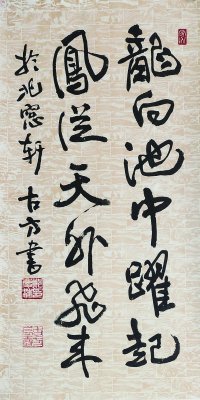 龍向池中躍起
鳳從天外飛來
於北窓軒 古方書